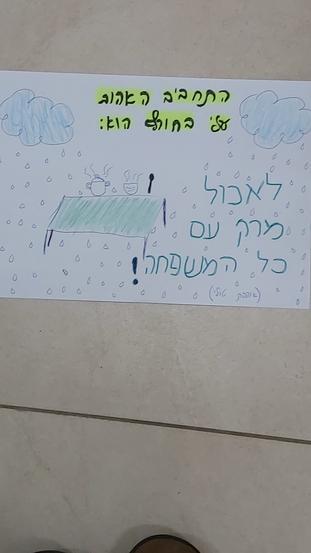 התחביב האהוב
עלי בחורף הוא:
לאכול
מרק עם
כל המשפחה!